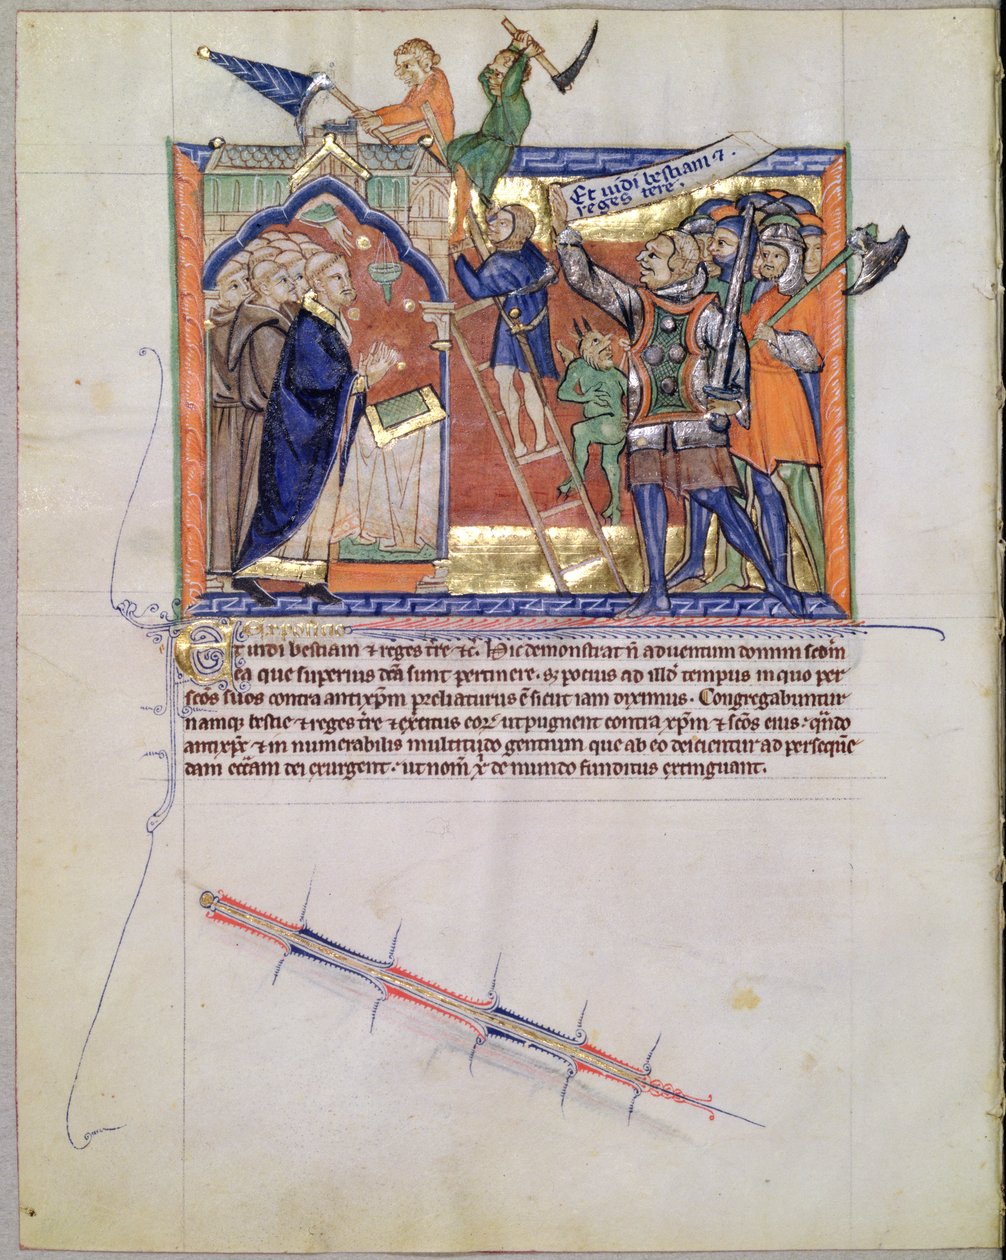 Et uidi bestiam ⁊.
reges tere.
Expositio
Et uidi bestiam ⁊ reges tr̄e ⁊c̄. Hic demonstrat n̄ aduentum domini sed̄m
ea que superius dc̄a sunt pertinere. sꝫ pocius ad illd̄ tempus in quo per
sc̄os suos contra antixp̄m preliaturus ē sicut iam diximus. Congregabuntur
namqꝫ bestie ⁊ reges tr̄e ⁊ exercitus eoꝝ ut pugnent contra xp̄m ⁊ sc̄os eius. qn̄do
antixp̄c ⁊ innumerabilis multitudo gentium que ab eo deicientur ad persequē
dam eccl̄am dei exurgent. ut nom̄ xp̄i de mundo funditus extinguant.